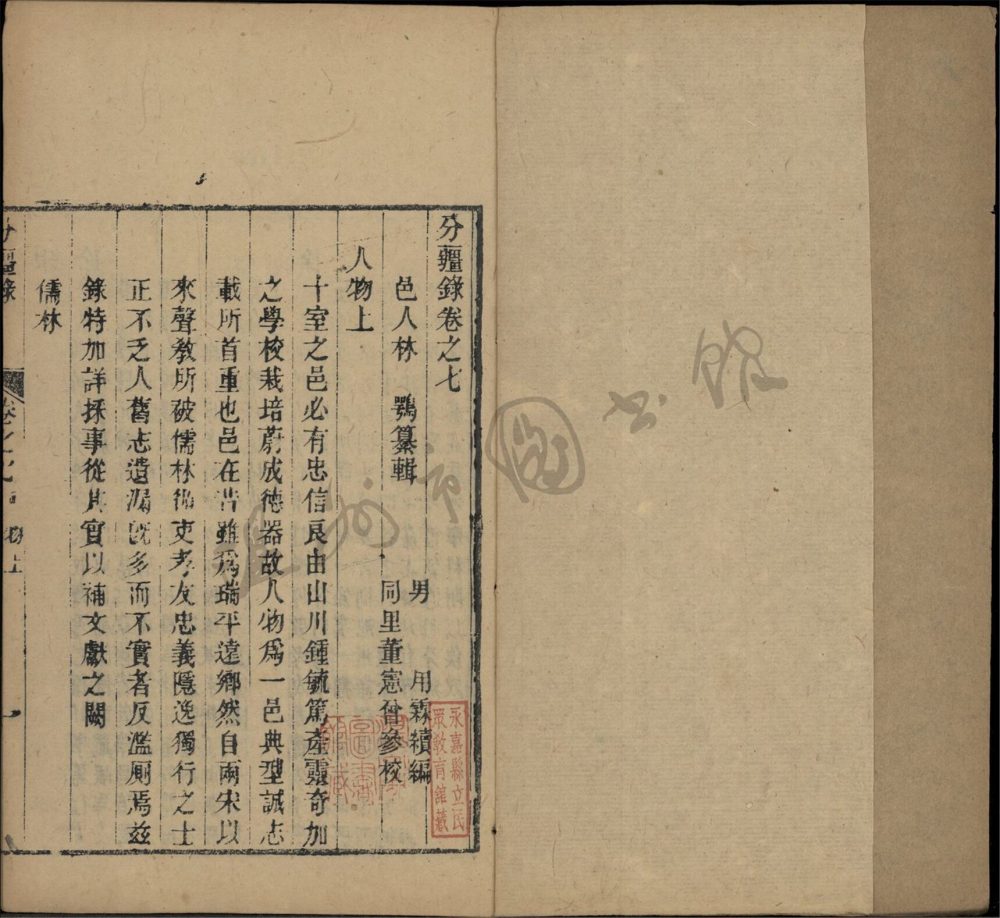 分疆錄卷之七
邑人林 鶚纂輯 男 用霖續編
同里董憲曾參校
人物上
十室之邑必有忠信良由山川鍾毓篤產靈奇加
之學校栽培蔚成德器故人物爲一邑典型誠志
載所首重也邑在昔雖爲瑞平遠鄉然自兩宋以
來聲敎所被儒林循吏孝友忠義隱逸獨行之士
正不乏人舊志遺漏旣多而不實者反濫厠焉兹
錄特加詳採事從其實以補文獻之闕
儒林
分疆錄 卷之七 物上 一
永嘉縣立民
眾敎育館藏
溫州市圖書館